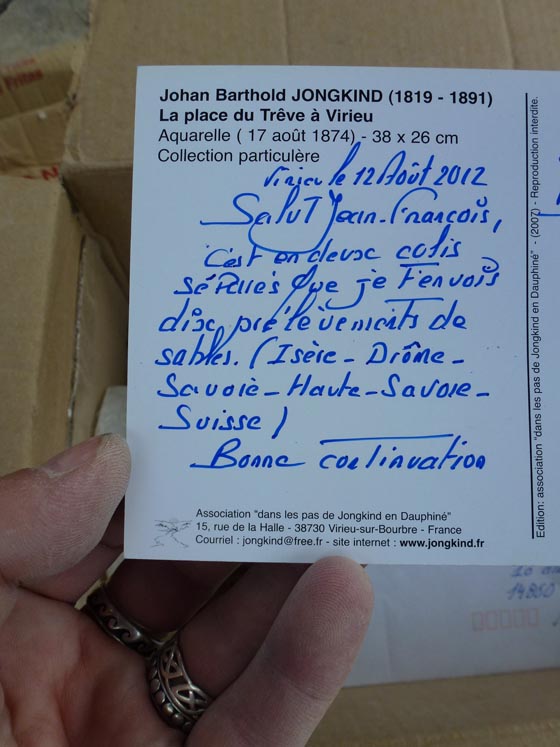 Johan Barthold JONGKIND (1819 - 1891)
La place du Trêve à Virieu
Aquarelle ( 17 août 1874) - 38 x 26 cm
Collection particulère
Virieu le 12 Août 2012
Salut Jean-François,
C'est en deux colis
séparés que je t'envois
dix prélèvements de
sables. (Isère - Drôme -
Savoie - Haute-Savoie -
Suisse)
Bonne continuation
Association "dans les pas de Jongkind en Dauphiné"
15, rue de la Halle - 38730 Virieu-sur-Bourbre - France
Courriel : jongkind@free.fr - site internet : www.jongkind.fr
Edition: association "dans les pas de Jongkind en Dauphiné" - (2007) - Reproduction interdite.
14860